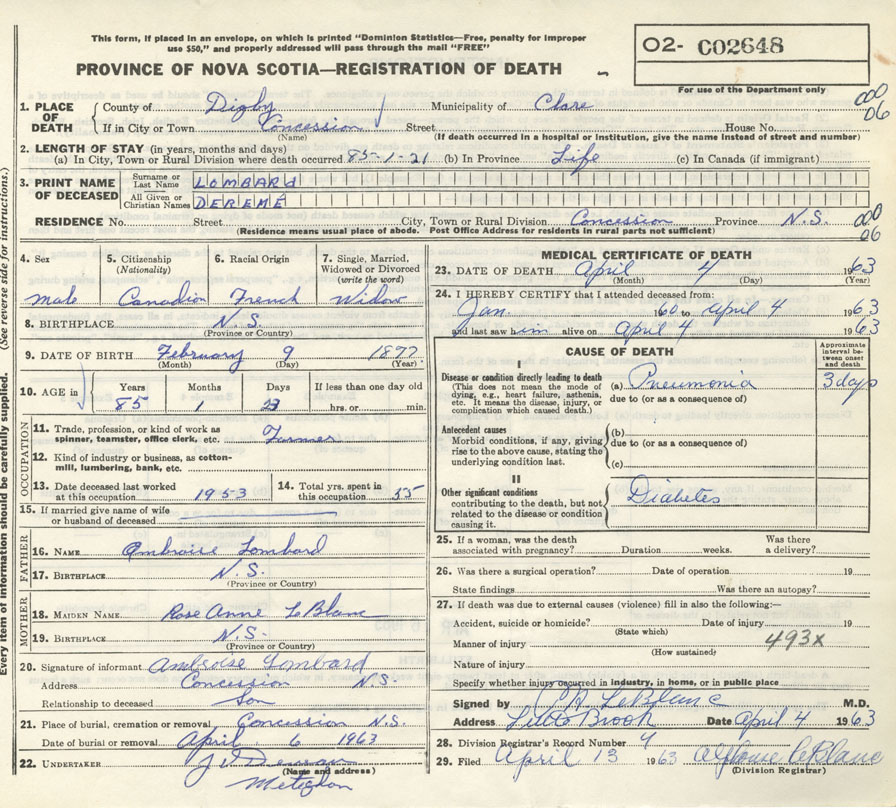 This form, if placed in an envelope, on which is printed "Dominion Statistics—Free, penalty for improper
use $50," and properly addressed will pass through the mail "FREE"
O2- C02648
For use of the Department only
PROVINCE OF NOVA SCOTIA—REGISTRATION OF DEATH
1. PLACE OF DEATH
County of Digby Municipality of Clare
000
06
If in City or Town Concession Street House No.
(Name) (If death occurred in a hospital or institution, give the name instead of street and number)
2. LENGTH OF STAY (in years, months and days)
(a) In City, Town or Rural Division where death occurred 85-1-21 (b) In Province Life (c) In Canada (if immigrant)
3. PRINT NAME OF DECEASED
Surname or Last Name LOMBARd
All Given or Christian Names DEREME
RESIDENCE No. Street City, Town or Rural Division Concession Province N.S.
000
06
(Residence means usual place of abode. Post Office Address for residents in rural parts not sufficient)
4. Sex male
5. Citizenship (Nationality) Canadian
6. Racial Origin French
7. Single, Married, Widowed or Divorced (write the word) Widow
8. BIRTHPLACE N.S.
(Province or Country)
9. DATE OF BIRTH February 9
(Month) (Day) (Year)
10. AGE in Years Months Days If less than one day old
85 1 hrs. or min.
OCCUPATION
11. Trade, profession, or kind of work as
spinner, teamster, office clerk, etc. Farmer
12. Kind of industry or business, as cotton-
mill, lumbering, bank, etc.
13. Date deceased last worked at this occupation 1953
14. Total yrs. spent in this occupation 55
15. If married give name of wife
or husband of deceased
FATHER
16. NAME Ambroise Lombard
17. BIRTHPLACE N.S.
(Province or Country)
MOTHER
18. MAIDEN NAME Rose Anne LeBlanc
19. BIRTHPLACE N.S.
(Province or Country)
20. Signature of informant Ambroise Lombard
Address Concession N.S.
Relationship to deceased Son
21. Place of burial, cremation or removal Concession N.S.
Date of burial or removal April 6 1963
22. UNDERTAKER
(Name and address)
Meteghan
MEDICAL CERTIFICATE OF DEATH
23. DATE OF DEATH April 4 1963
(Month) (Day) (Year)
24. I HEREBY CERTIFY that I attended deceased from:
Jan. 1960 to April 4 1963
and last saw him alive on April 4 1963
CAUSE OF DEATH
Approximate interval between onset and death
I
Disease or condition directly leading to death (a) Pneumonia 3 days
(This does not mean the mode of
dying, e.g., heart failure, asthenia,
etc. It means the disease, injury, or
complication which caused death.)
due to (or as a consequence of)
Antecedent causes
Morbid conditions, if any, giving
rise to the above cause, stating the
underlying condition last.
(b)
due to (or as a consequence of)
(c)
II
Other significant conditions
contributing to the death, but not
related to the disease or condition
causing it.
Diabetes
25. If a woman, was the death
associated with pregnancy? Duration weeks. Was there a delivery?
26. Was there a surgical operation? Date of operation 19
State findings Was there an autopsy?
27. If death was due to external causes (violence) fill in also the following:—
Accident, suicide or homicide? Date of injury 19
(State which)
Manner of injury 493x
(How sustained)
Nature of injury
Specify whether injury occurred in industry, in home, or in public place
Signed by LeBlanc M.D.
Address Little Brook Date April 4 1963
28. Division Registrar's Record Number 4
29. Filed April 13 1963 Alphonse LeBlanc
(Division Registrar)
Every item of information should be carefully supplied. (See reverse side for instructions.)